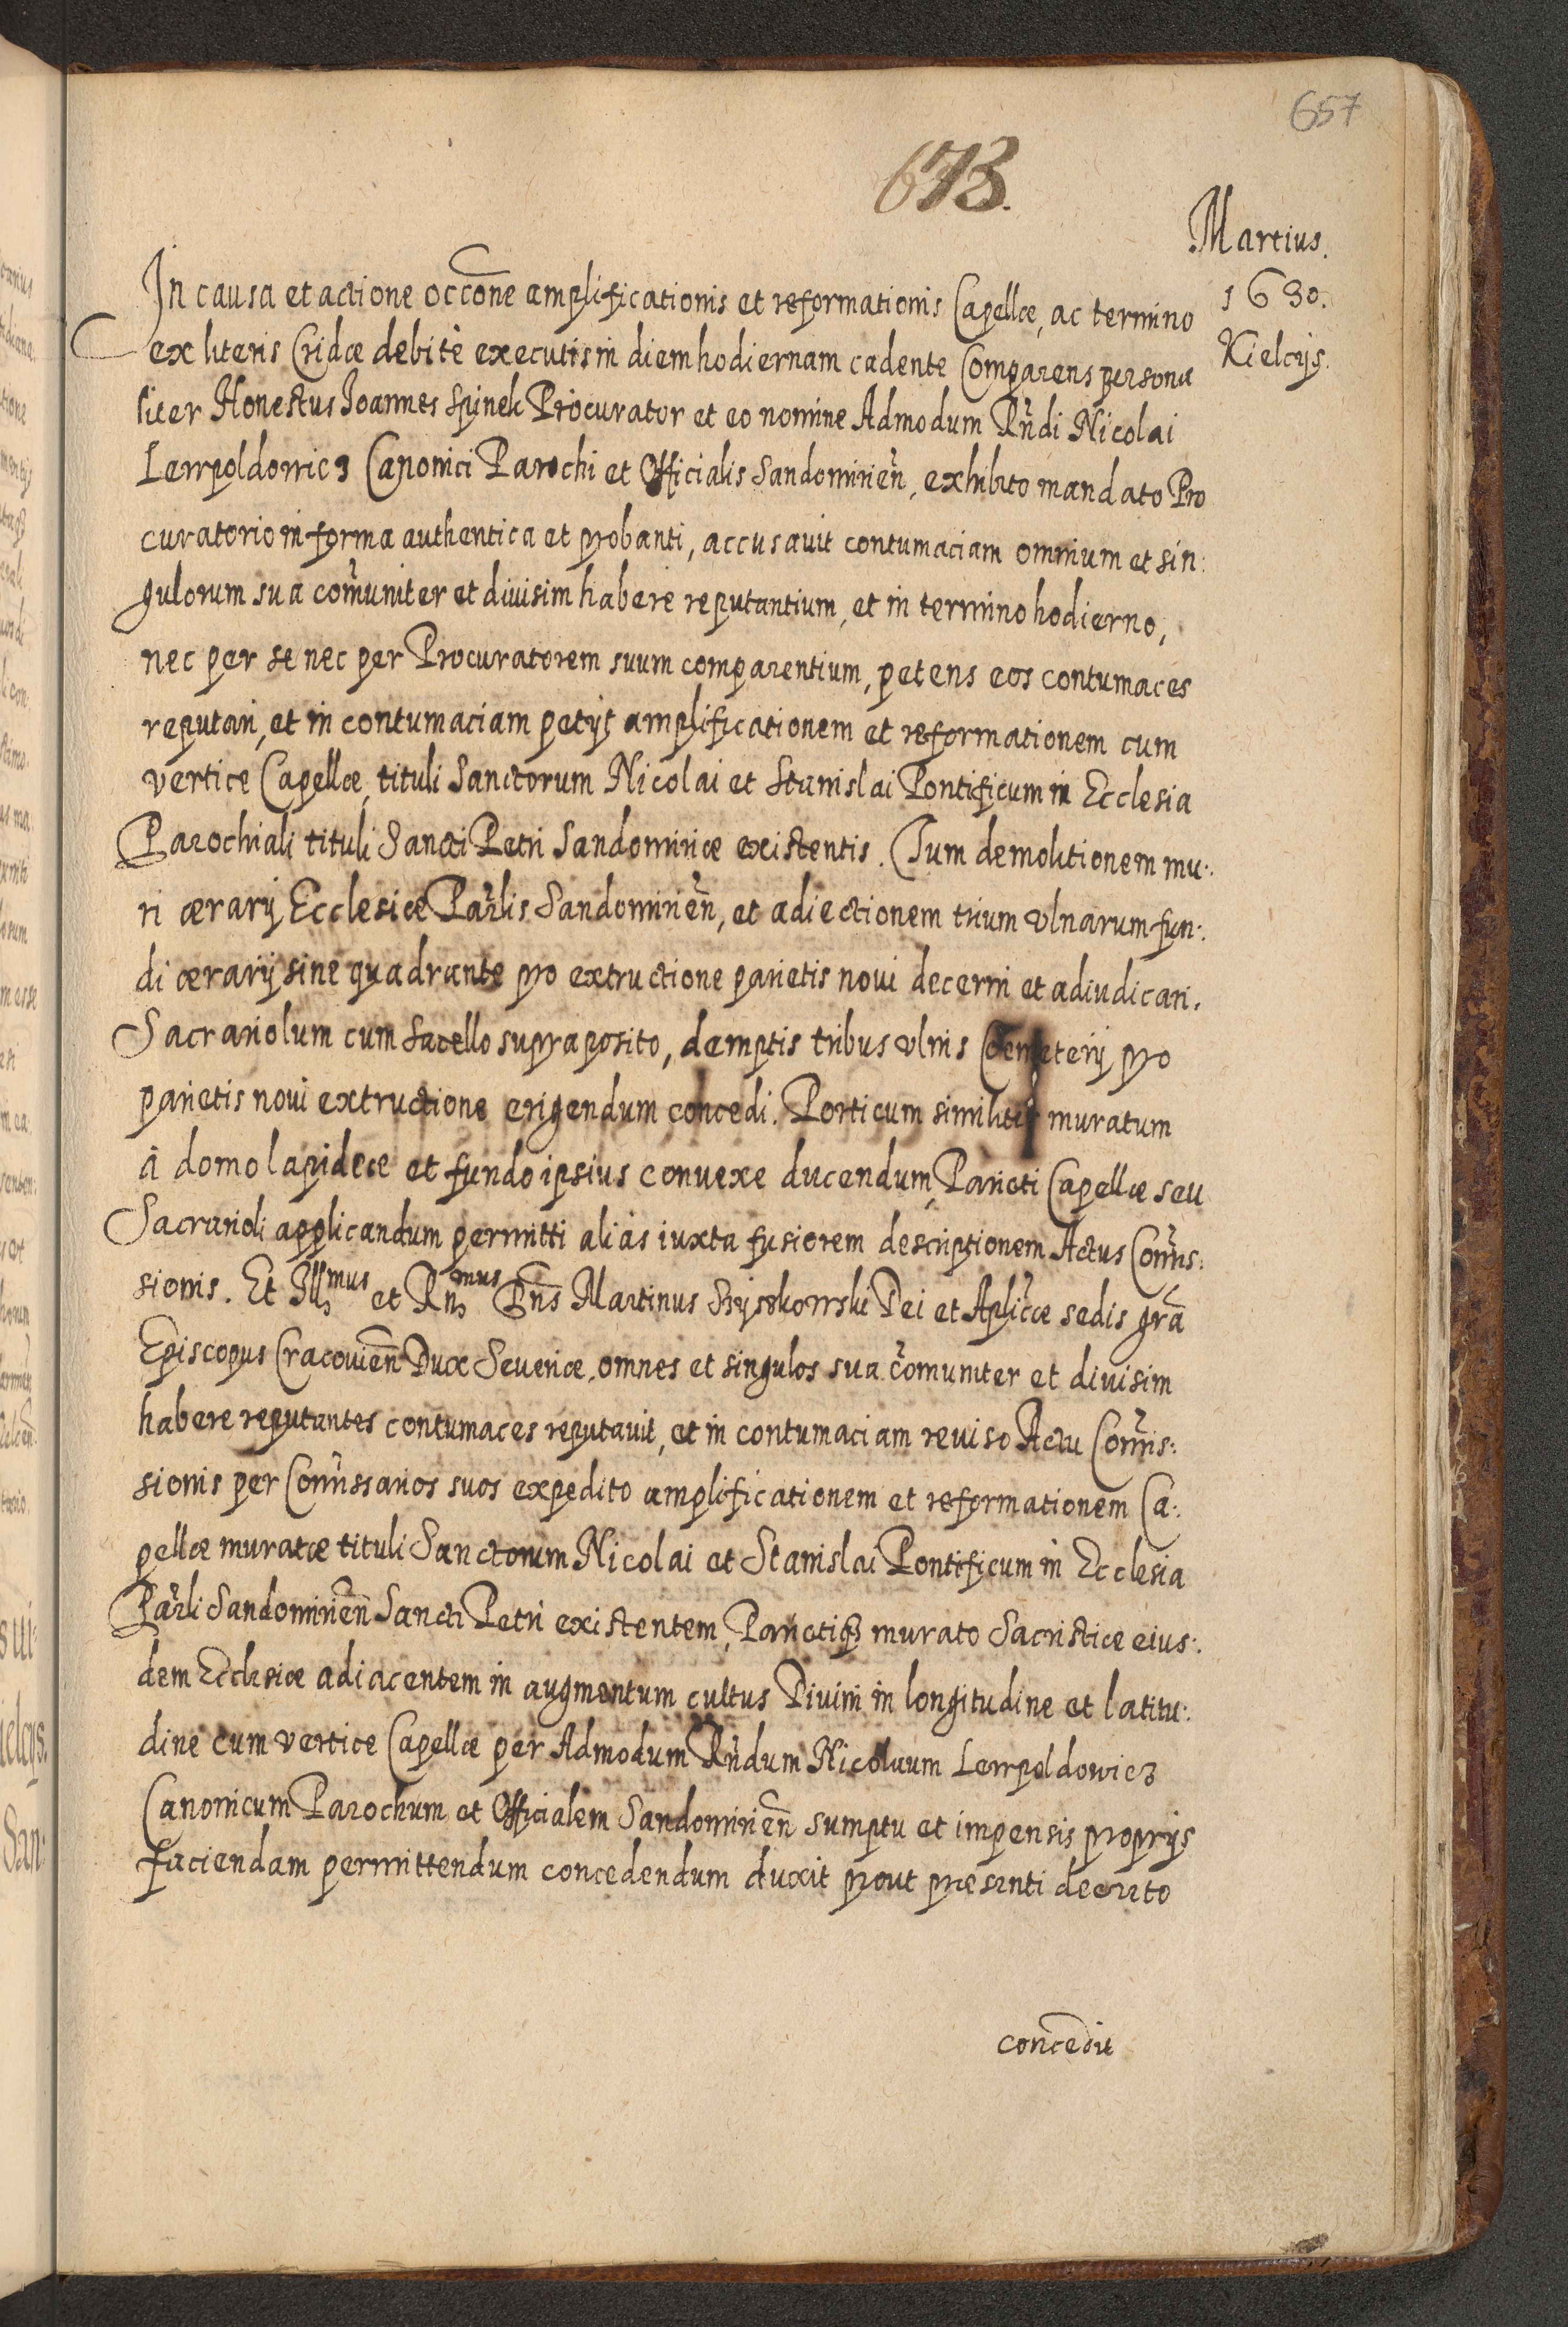 657
673.
Martius.
1630.
Kielcijs.
In causa et actione occõne amplificationis et reformationis Capellæ, ac termino
ex literis Cridæ debitè executis in diem hodiernam cadente Comparens persona
liter Honestus Ioannes Spinek Procurator et eo nomine Admodum Rñdi Nicolai
Lewpoldowicz Canonici Parochi et Officialis Sandomirieñ, exhibito mandato Pro
curatorio in forma authentica et probanti, accusauit contumaciam omnium et sin:
gulorum sua com̃uniter et diuisim habere reputantium, et in termino hodierno,
nec per se nec per Procuratorem suum comparentium, petens eos contumaces
reputari, et in contumaciam petijt amplificationem et reformationem cum
vertice Capellæ, tituli Sanctorum Nicolai et Stanislai Pontificum in Ecclesia
Parochiali tituli Sancti Petri Sandomiriæ existentis. Tum demolitionem mu:
ri ærarij Ecclesiæ Parlĩs Sandomirieñ, et adiectionem trium vlnarum fun:
di ærarij sine quadrante pro extructione parietis noui decerni et adiudicari.
Sacrariolum cum sacello supraposito, demptis tribus vlnis Cemeterij pro
parietis noui extructione erigendum concedi. Porticum similiter muratum
à domo lapideæ et fundo ipsius conuexe ducendum, Parieti Capellæ seu
Sacrarioli applicandum permitti aliàs iuxta fusiorem descriptionem Actus Com̃is:
sionis. Et Illmus et Rnmus Dñs Martinus Szyszkowski Dei et Aplĩcæ sedis grã
Episcopus Cracouieñ Dux Seueriæ, omnes et singulos sua com̃uniter et diuisim
habere reputantes contumaces reputauit, et in contumaciam reuiso Actu Com̃is:
sionis per Com̃issarios suos expedito amplificationem et reformationem Ca:
pellæ muratæ tituli Sanctorum Nicolai et Stanislai Pontificum in Ecclesia
Parlĩ Sandomirieñ Sancti Petri existentem, Parietiqȝ murato Sacristiæ eius:
dem Ecclesiæ adiacentem in augmentum cultus Diuini in longitudine et latitu:
dine cum vertice Capellæ per Admodum Rñdum Nicolaum Lewpoldowicz
Canonicum Parochum et Officialem Sandomirieñ sumptu et impensis proprijs
faciendam permittendum concedendum duxit prout præsenti decreto
concedit